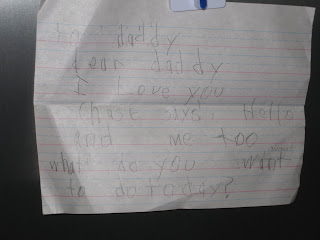 daddy
dear daddy
I Love you
Chase says Hello
and me too
what do you want
to do today?